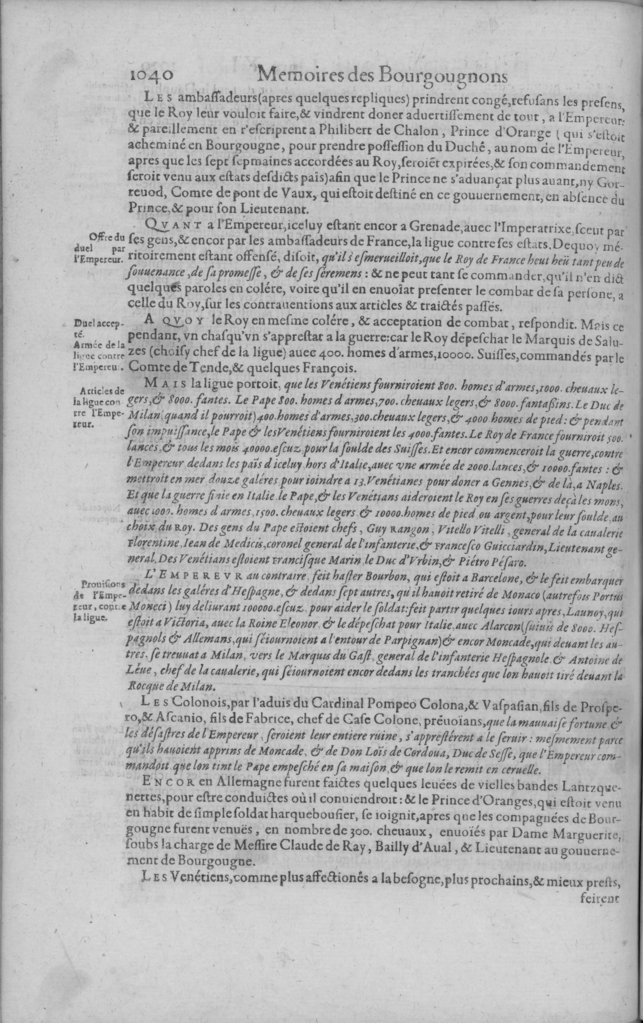 1040 Memoires des Bourgougnons
LES ambassadeurs(apres quelques repliques) prindrent congé,refusans les presens,
que le Roy leur vouloit faire,& vindrent doner advertissement de tout, a l'Empereur:
& pareillement en r'escriprent a Philibert de Chalon, Prince d'Orange ( qui s'estoit
acheminé en Bourgougne, pour prendre possession du Duché, au nom de l'Empereur,
apres que les sept sepmaines accordées au Roy,seroiēt expirées,& son commandement
seroit venu aux estats desdicts païs)afin que le Prince ne s'aduançat plus auant,ny Gor-
reuod, Comte de pont de Vaux, qui estoit destiné en ce gouuernement, en absence du
Prince,& pour son Lieutenant.
QVANT a l'Empereur,iceluy estant encor a Grenade,auec l'Imperatrixe,sceut par
Offre du
duel par
l'Empereur.
ses gens,& encor par les ambassadeurs de France,la ligue contre ses estats.Dequoy mé-
ritoirement estant offensé, disoit, qu'il s'esmerueilloit,que le Roy de France heut heü tant peu de
souuenance,de sa promesse, & de ses seremens : & ne peut tant se commander,qu'il n'en dict
quelques paroles en colére, voire qu'il en enuoïat presenter le combat de sa persone, a
celle du Roy,sur les contrauentions aux articles & traictés passés.
Duel accep-
té.
Armée de la
ligue contre
l'Empereur.
A QVOY le Roy en mesme colére, & acceptation de combat, respondit. Mais ce
pendant, vn chasqu'vn s'apprestat a la guerre:car le Roy dépeschat le Marquis de Salu-
zes (choisy chef de la ligue) auec 400. homes d'armes,10000. Suisses,commandés par le
Comte de Tende,& quelques François.
Articles de
la ligue con
tre l'Empe-
reur.
MAIS la ligue portoit, que les Venétiens fourniroient 800. homes d'armes,1000. cheuaux le-
gers,& 8000. fantes. Le Pape 800. homes d'armes,700. cheuaux legers,& 8000. fantaßins. Le Duc de
Milan(quand il pourroit)400.homes d'armes,300.cheuaux legers,& 4000 homes de pied: & pendant
son impuissance,le Pape & les Venétiens fourniroient les 4000.fantes.Le Roy de France fourniroit 500.
lances,& tous les mois 40000.escuz pour la soulde des Suisses.Et encor commenceroit la guerre,contre
l'Empereur dedans les païs d'iceluy hors d'Italie,auec vne armée de 2000.lances,& 10000.fantes : &
mettroit en mer douze galéres pour ioindre a 13.Venétianes pour doner a Gennes,& de là,a Naples.
Et que la guerre finie en Italie. le Pape,& les Venétians aideroient le Roy en ses guerres deçà les mons,
auec 1000. homes d'armes,1500.cheuaux legers & 10000.homes de pied ou argent,pour leur soulde,au
choix du ROY. Des gens du Pape estoient chefs, Guy Rangon, Vitello Vitelli, general de la caualerie
Florentine.Iean de Medicis,coronel general de l'infanterie,& Francesco Guicciardin, Lieutenant ge-
neral.Des Venétians estoient Francisque Marin,le Duc d'Vrbin,& Piétro Pésaro.
Prouisions
de l'Empe-
reur, contre
la ligue.
L'EMPEREVR au contraire feit haster Bourbon, qui estoit a Barcelone, & le feit embarquer
dedans les galéres d'Hespagne,& dedans sept autres, qu'il hauoit retiré de Monaco (autrefois Portus
Moneci) luy deliurant 100000.escuz pour aider le soldat:feit partir quelques iours apres,Launoy,qui
estoit a Victoria, auec la Roine Eleonor & le dépeschat pour Italie,auec Alarcon(suiuis de 8000. Hes-
pagnols & Allemans,qui séiournoient a l'entour de Parpignan)& encor Moncade,qui deuant les au-
tres, se treuuat a Milan, vers le Marquis du Gast, general de l'infanterie Hespagnole & Antoine de
Léue, chef de la caualerie, qui séiournoient encor dedans les tranchées que lon hauoit tiré deuant la
Rocque de Milan.
LES Colonois,par l'aduis du Cardinal Pompeo Colona,& Vaspasian,fils de Prospe-
ro,& Ascanio, fils de Fabrice, chef de Case Colone, préuoïans,que la mauuaise fortune &
les désastres de l'Empereur, seroient leur entiere ruine, s'apprestérent a le seruir: mesmement parce
qu'ils hauoient apprins de Moncade, & de Don Loïs de Cordoua, Duc de Sesse, que l'Empereur com-
mandoit que lon tint le Pape empesché en sa maison,& que lon le remit en ceruelle.
ENCOR en Allemagne furent faictes quelques leuées de vielles bandes Lantzque-
nettes,pour estre conduictes où il conuiendroit: & le Prince d'Oranges,qui estoit venu
en habit de simple soldat harquebousier, se ioignit,apres que les compagnées de Bour-
gougne furent venuës, en nombre de 300. cheuaux, enuoïés par Dame Marguerite,
soubs la charge de Messire Claude de Ray, Bailly d'Aual, & Lieutenant au gouuerne-
ment de Bourgougne.
LES Venétiens,comme plus affectionés a la besogne,plus prochains,& mieux prests,
feirent